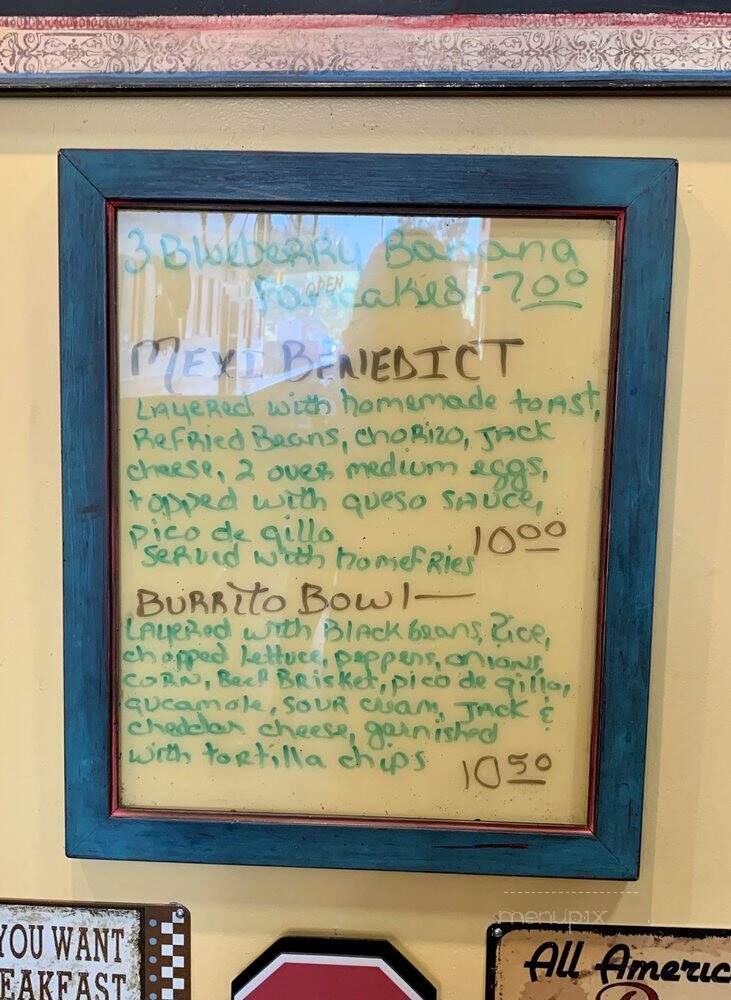 3 Blueberry Banana
Pancakes - 7.00
OPEN
MEXI BENEDICT
Layered with homemade toast,
Refried Beans, chorizo, Jack
cheese, 2 over medium eggs,
topped with queso sauce,
pico de gillo 10.00
served with homefries
BURRITO BOWl—
Layered with Black beans, Rice,
chopped lettuce, peppers, onions,
corn, Beef Brisket, pico de gillo,
gucamole, sour cream, Jack &
cheddar cheese, garnished
with tortilla chips 10.50
menupix
YOU WANT
EAKFAST
All Americ